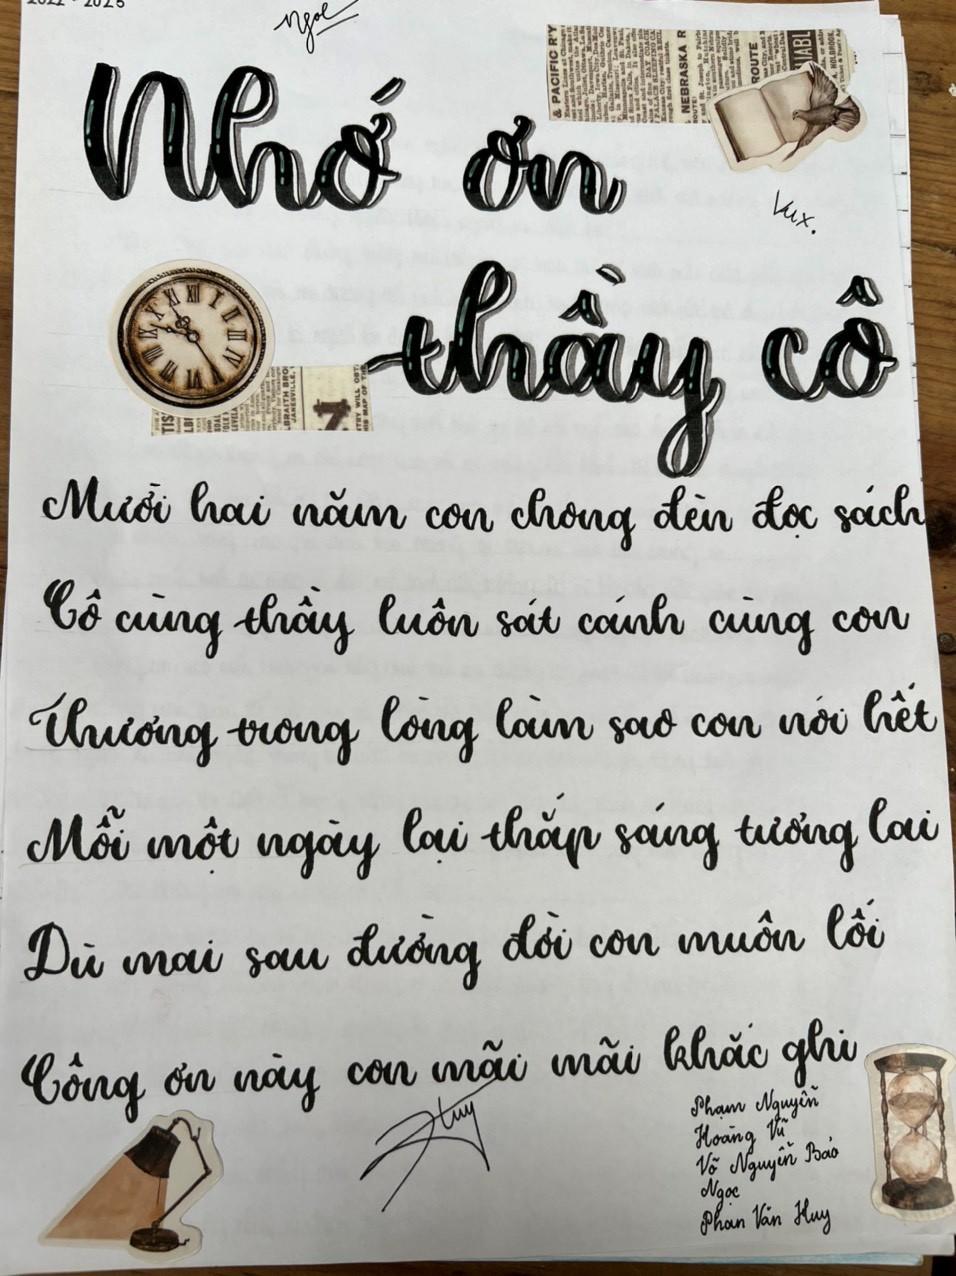 2022 - 2025
Ngọc
& PACIFIC R'Y
NEBRASKA R
ROUTE
Nhớ ơn
Vux.
thầy cô
Mười hai năm con chong đèn đọc sách
Cô cùng thầy luôn sát cánh cùng con
Thương trong lòng làm sao con nói hết
Mỗi một ngày lại thắp sáng tương lai
Dù mai sau đường đời con muôn lối
Công ơn này con mãi mãi khắc ghi
Huy
Phạm Nguyễn
Hoàng Vũ
Võ Nguyễn Bảo
Ngọc
Phan Văn Huy